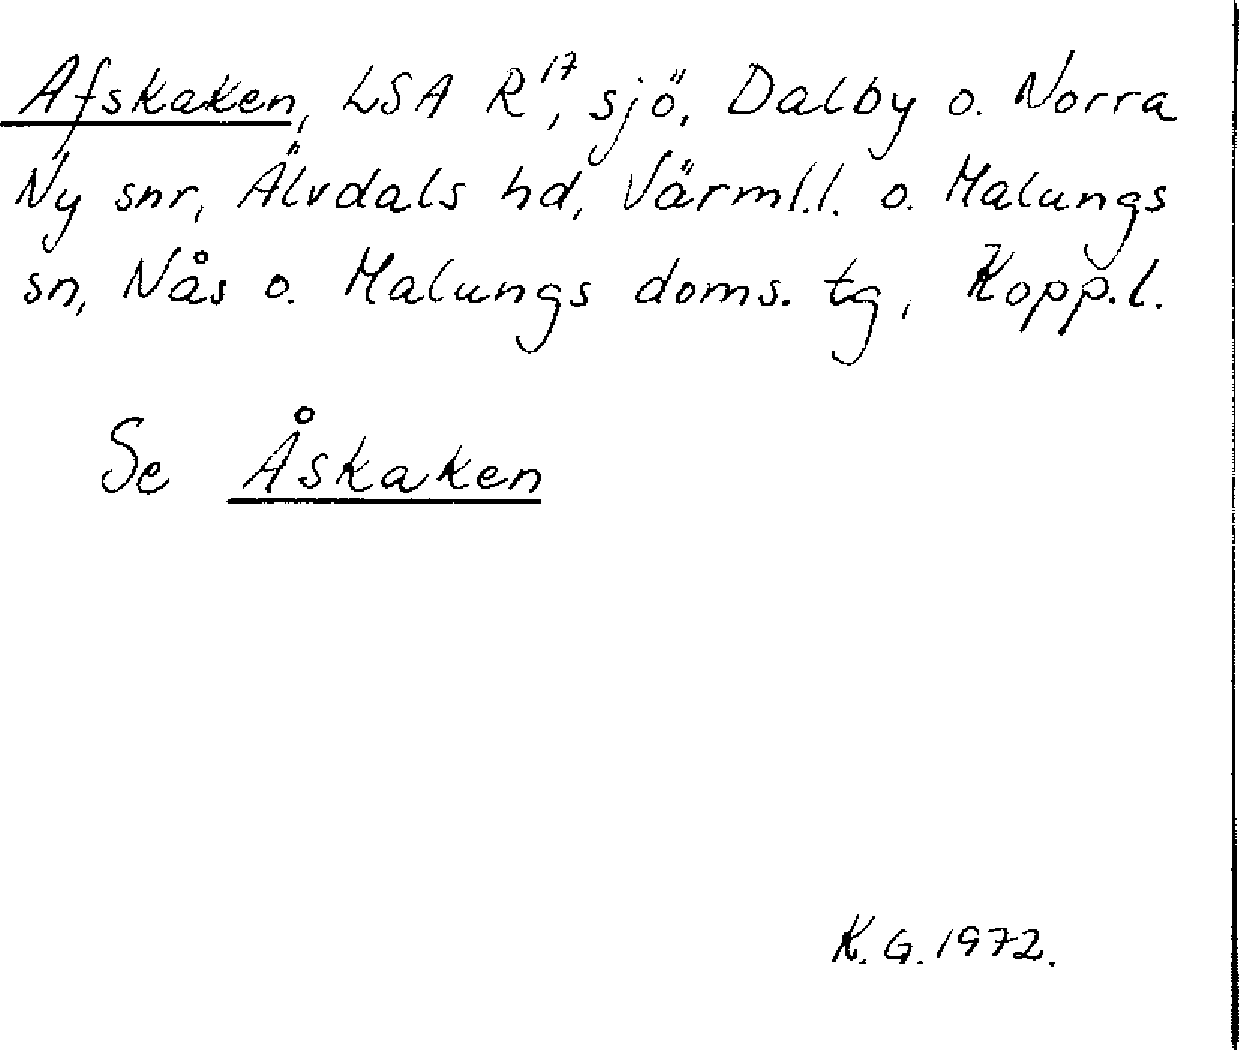 Afskaken, LSA R17, sjö, Dalby o. Norra
Ny snr, Älvdals hd, Värml.l. o. Malungs
sn, Nås o. Malungs doms. tg, Kopp.l.
Se Åskaken
K.G. 1972.